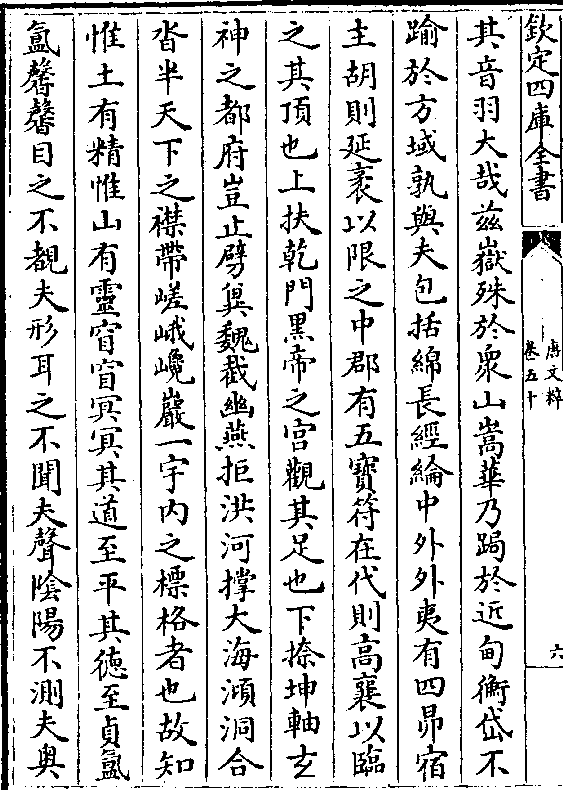 欽定四庫全書
唐文粹
卷五十
六
其音羽大哉兹嶽殊於衆山嵩華乃跼於近甸衡岱不
踰於方域孰與夫包括綿長經綸中外外夷有四昴宿
主胡則延袤以限之中郡有五寳符在代則高褰以臨
之其頂也上扶乾門黒帝之宫觀其足也下捺坤軸玄
神之都府豈止劈巽魏截幽燕拒洪河撑大海澒洞合
沓半天下之襟帶嵯峨巉巖一宇内之標格者也故知
惟土有精惟山有靈窅窅冥冥其道至平其徳至貞氲
氲馨馨目之不覩夫形耳之不聞夫聲陰陽不測夫奥